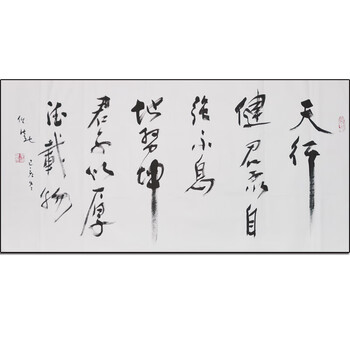 天行
健君子自
强不息
地势坤
君子以厚
德載物